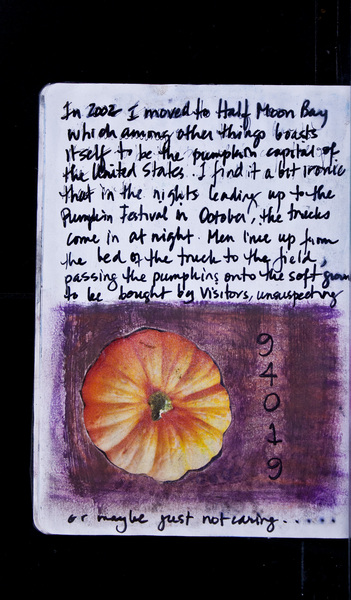 In 2002 I moved to Half Moon Bay
which among other things boasts
itself to be the pumpkin capital of
the United States. I find it a bit ironic
that in the nights leading up to the
Pumpkin Festival in October, the trucks
come in at night. Men line up from
the bed of the truck to the field,
passing the pumpkins onto the soft groun
to be bought by visitors, unsuspecting
94019
or maybe just not caring......